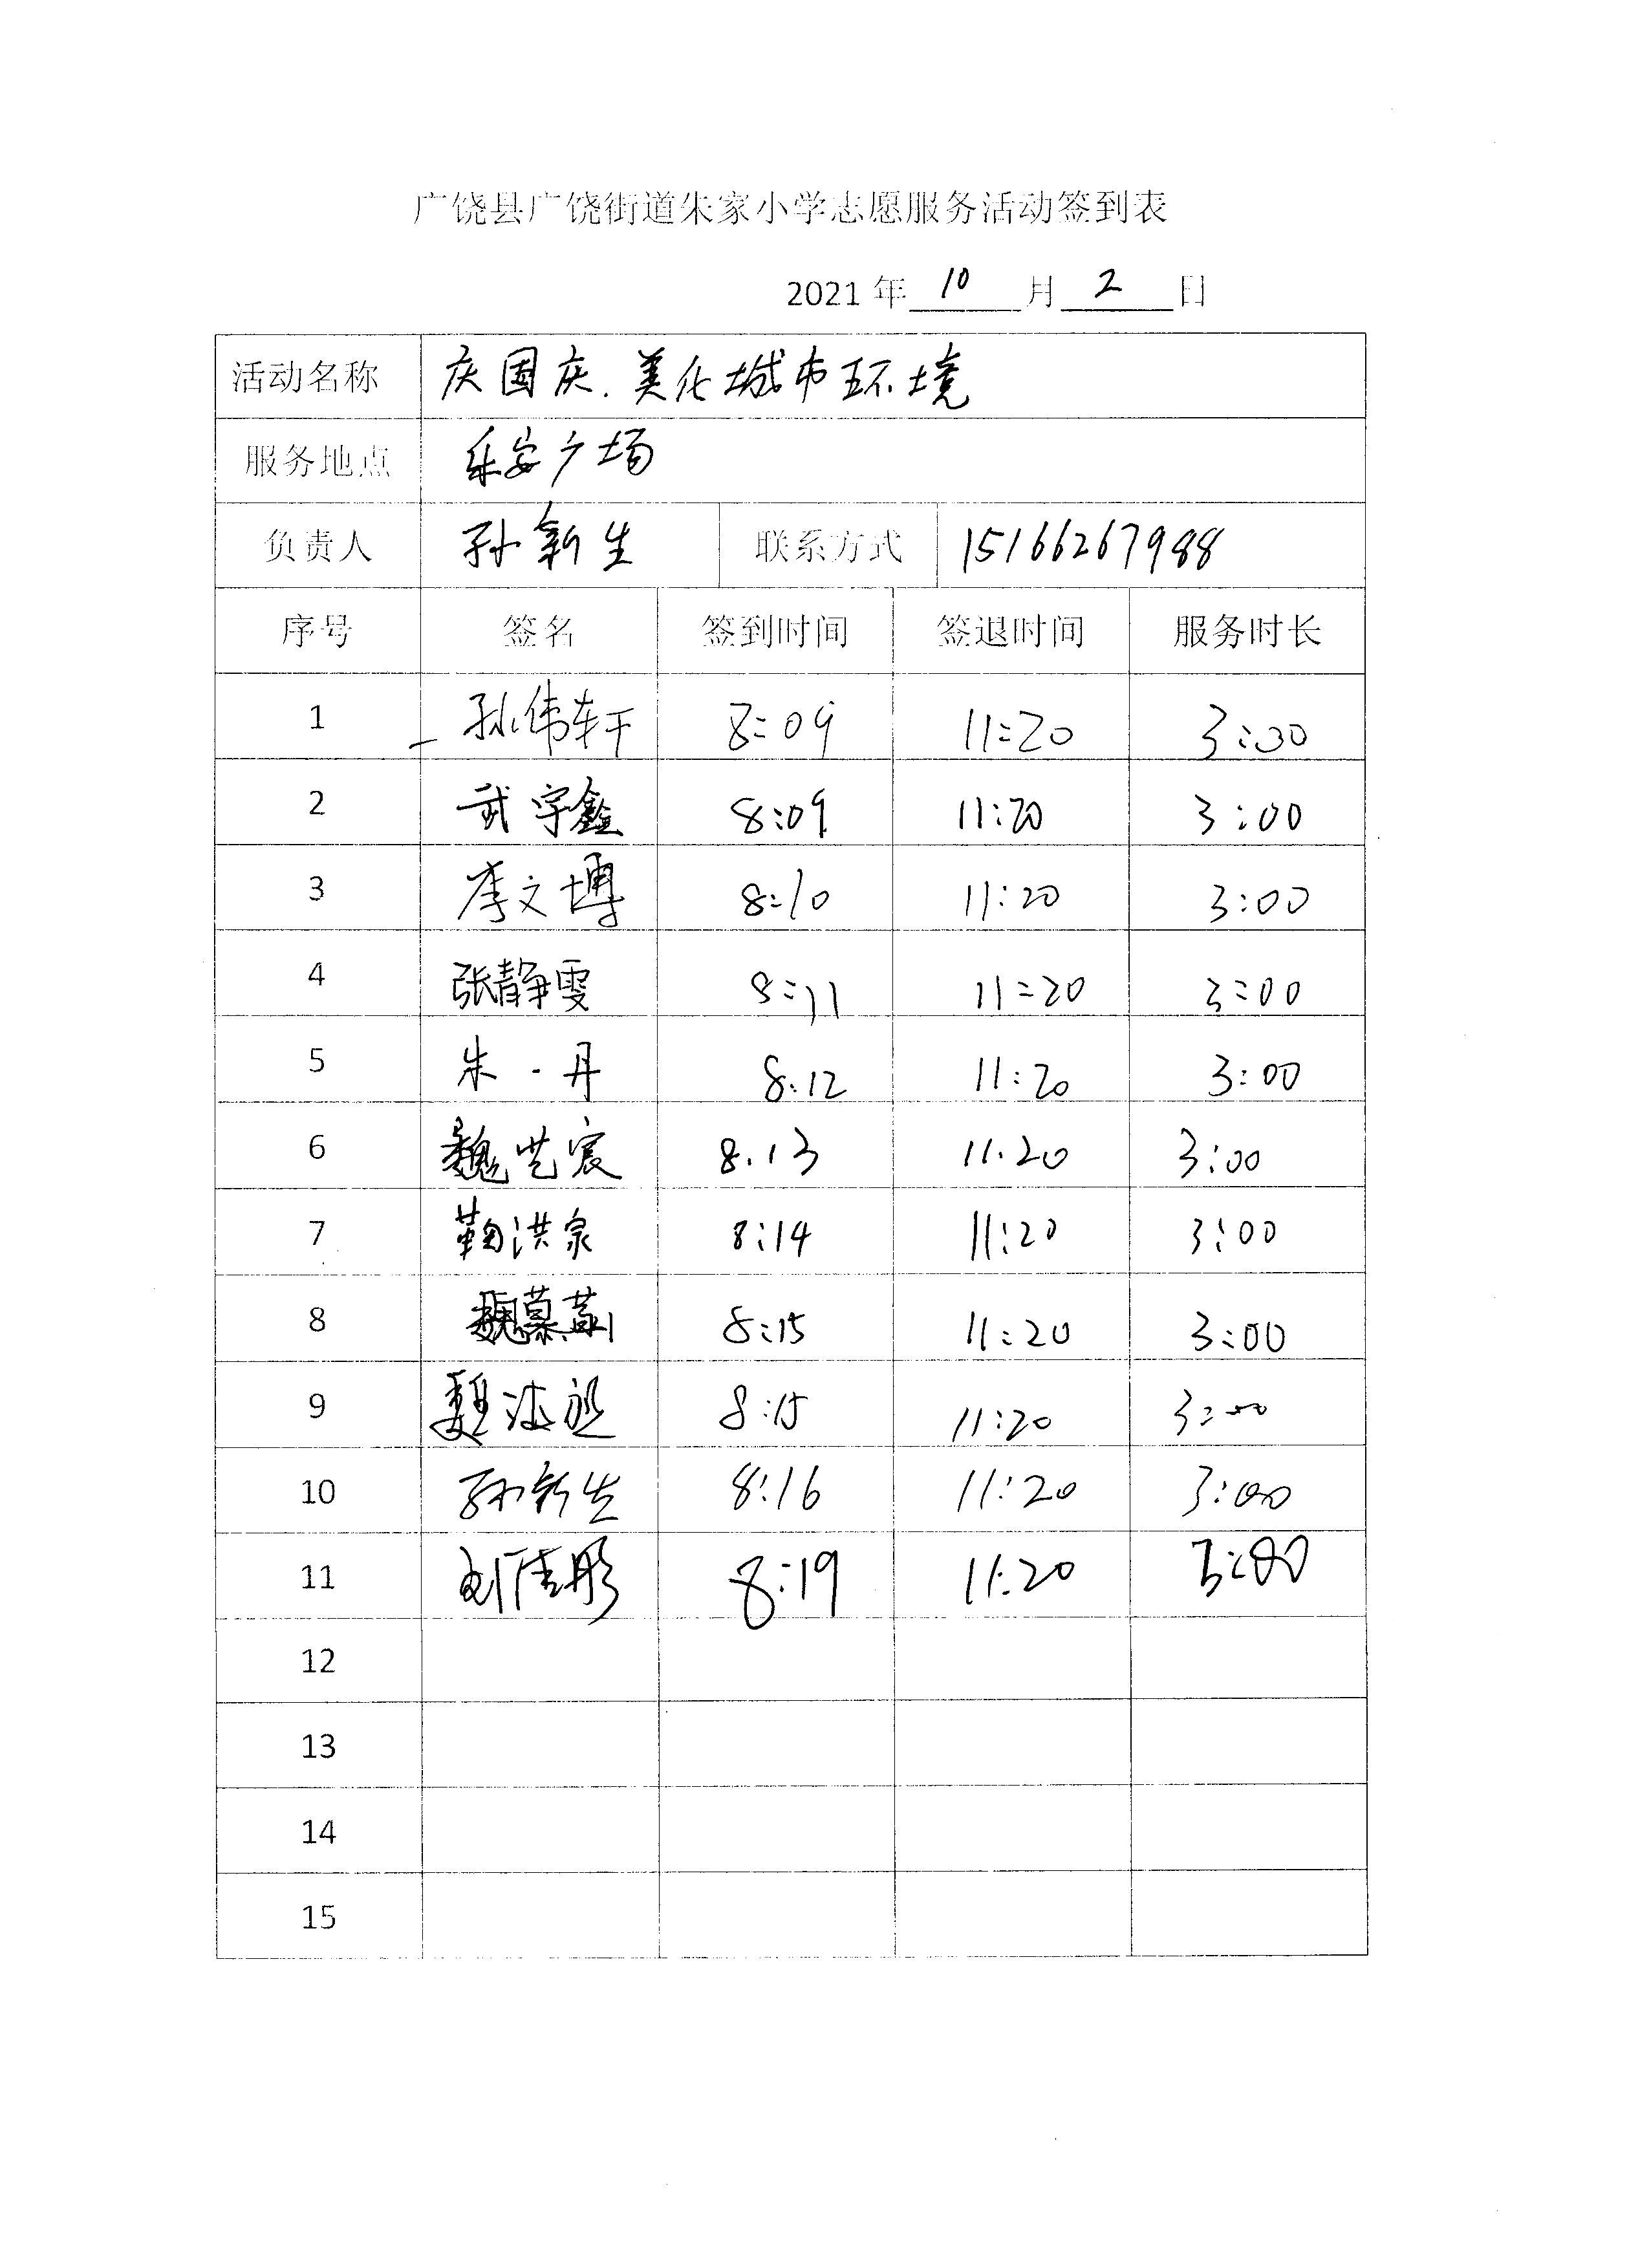 广饶县广饶街道朱家小学志愿服务活动签到表
2021 年 10 月 2 日
活动名称 庆国庆.美化城市环境
服务地点 乐安广场
负责人 孙新生 联系方式 15166267988
序号 签名 签到时间 签退时间 服务时长
1 孙伟轩 8:09 11:20 3:00
2 武宇鑫 8:09 11:20 3:00
3 李文博 8:10 11:20 3:00
4 张静雯 8:11 11:20 3:00
5 朱·丹 8.12 11:20 3:00
6 魏艺宸 8.13 11.20 3:00
7 鞠洪泉 8:14 11:20 3:00
8 魏慕 8:15 11:20 3:00
9 魏 8:15 11:20 3:00
10 孙新生 8:16 11:20 3:00
11 刘佳彤 8:19 11:20 3:00
12
13
14
15